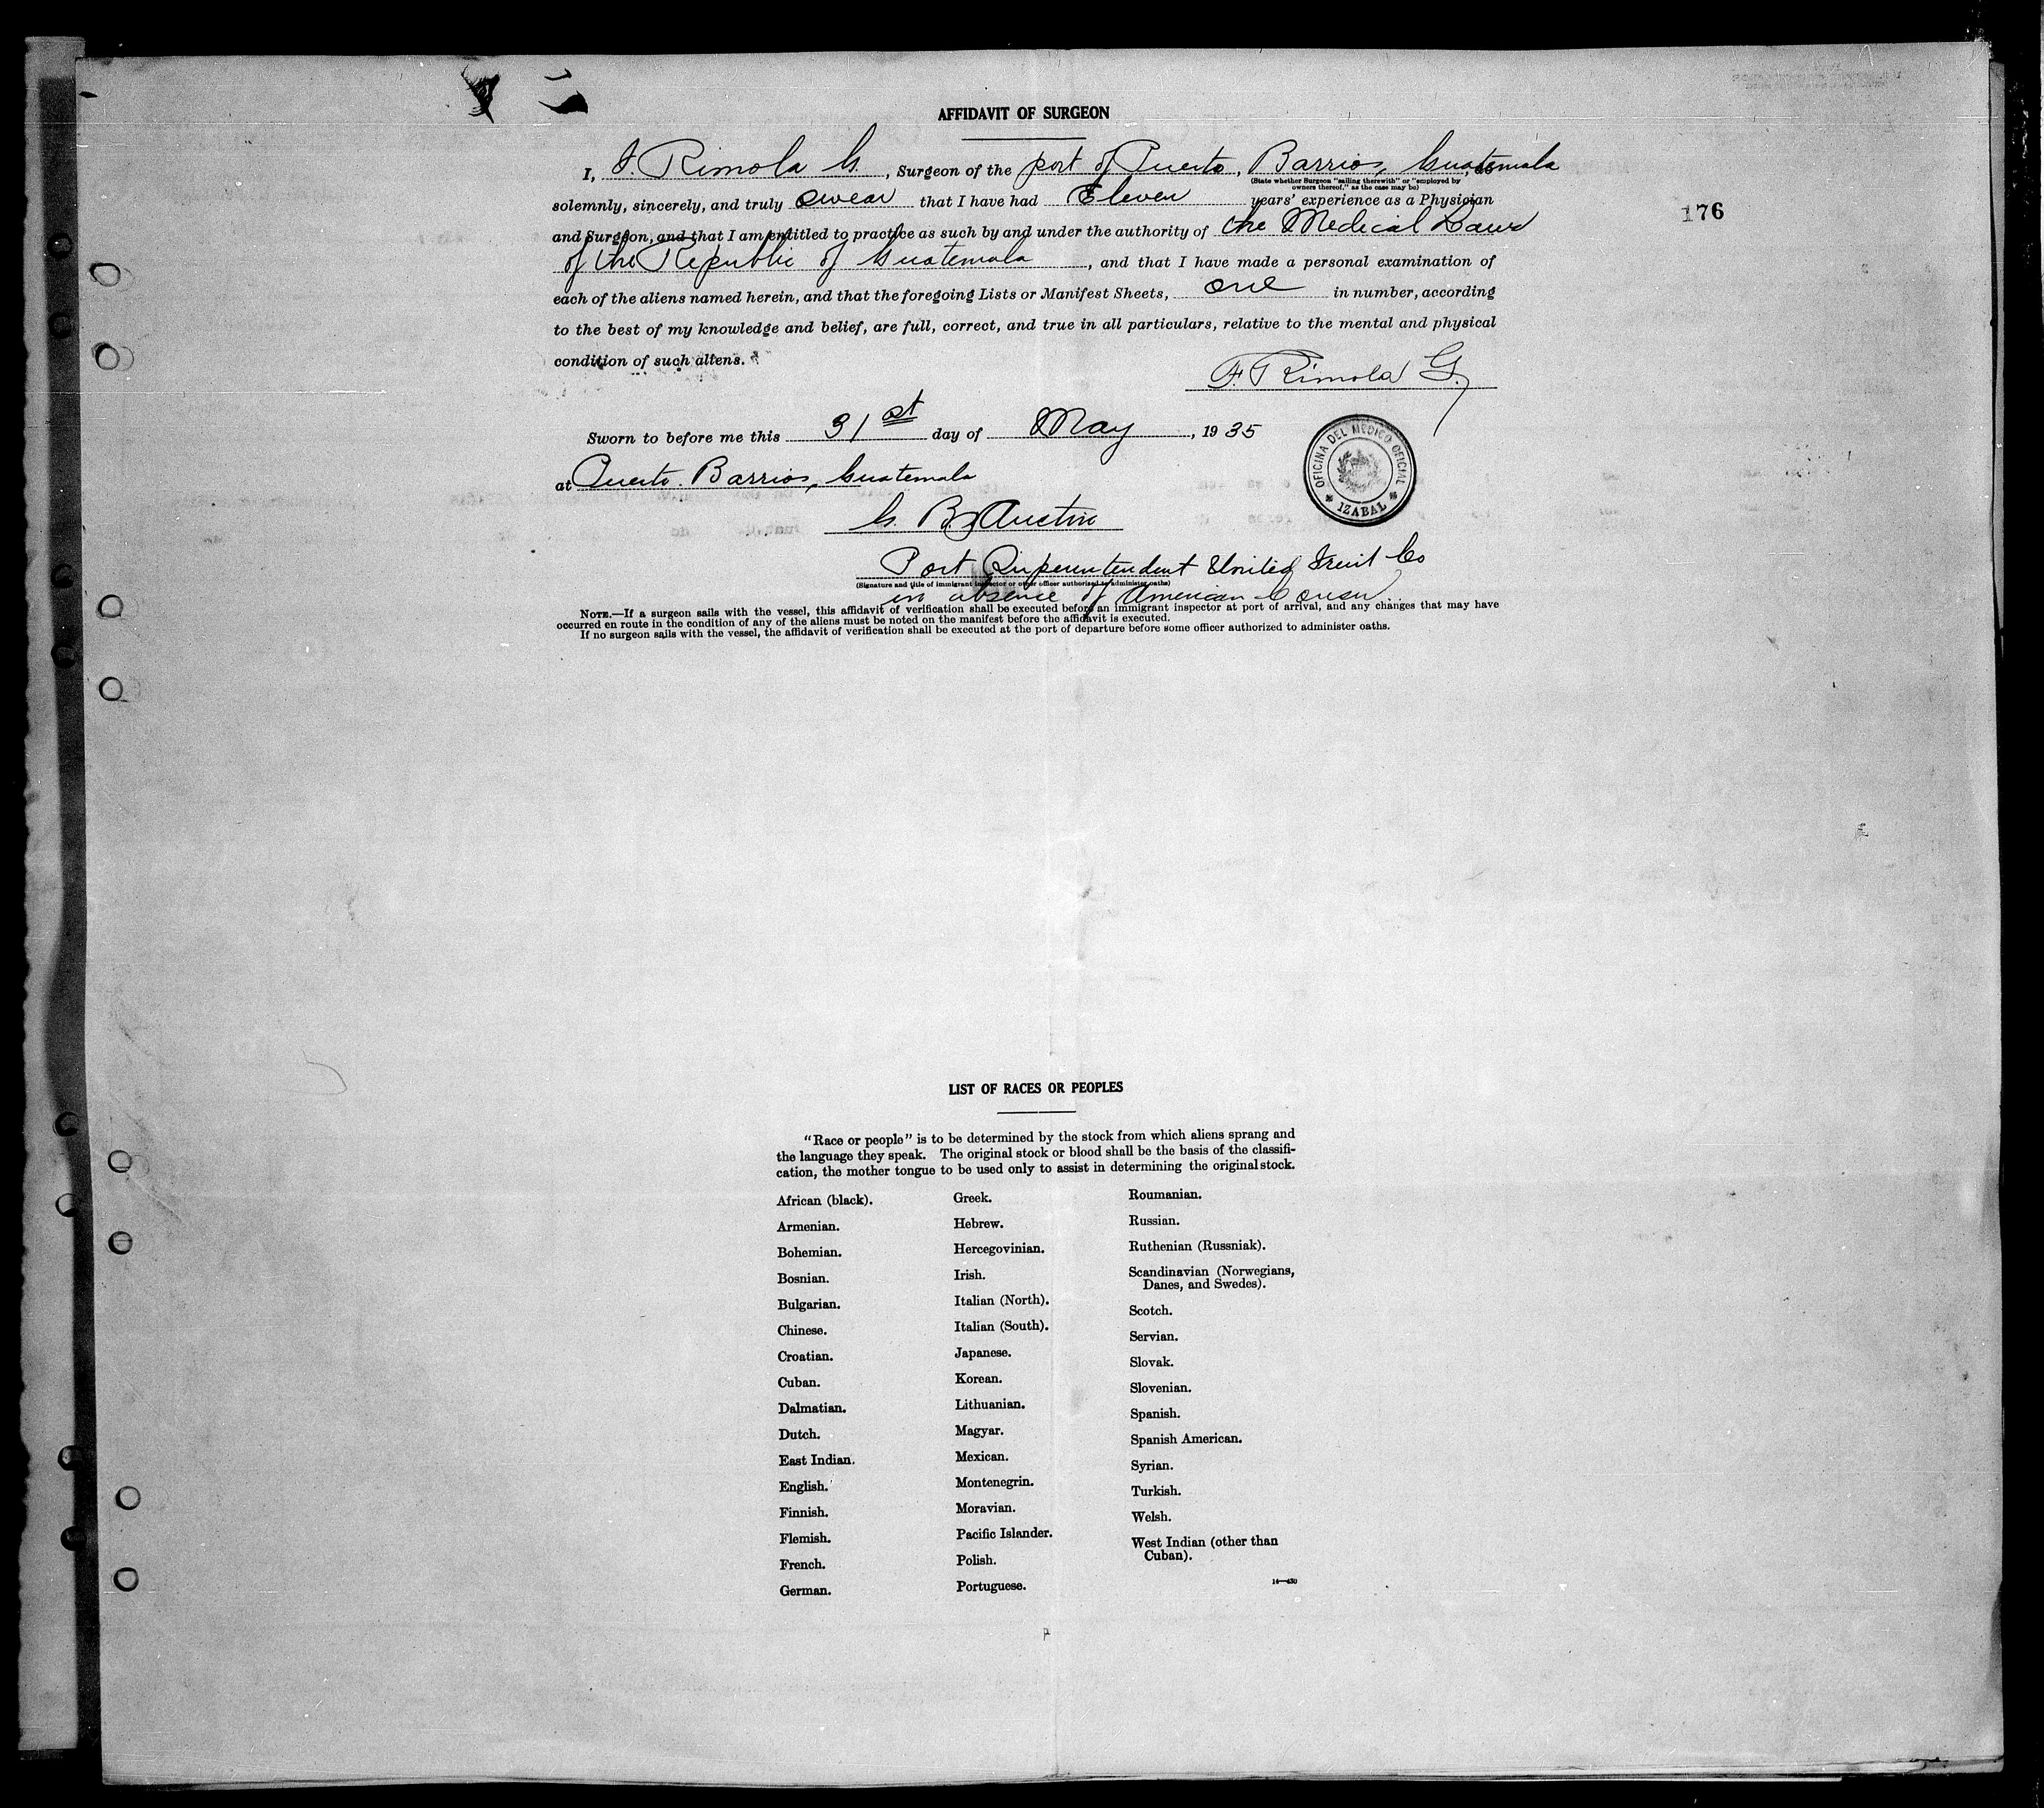 AFFIDAVIT OF SURGEON
I, F. Rimola G., Surgeon of the port of Puerto, Barrios, Guatemala, do
(State whether Surgeon "sailing therewith" or "employed by
owners thereof," as the case may be)
176
solemnly, sincerely, and truly swear that I have had Eleven years' experience as a Physician
and Surgeon, and that I am entitled to practice as such by and under the authority of the Medical Laws
of the Republic of Guatemala, and that I have made a personal examination of
each of the aliens named herein, and that the foregoing Lists or Manifest Sheets, one in number, according
to the best of my knowledge and belief, are full, correct, and true in all particulars, relative to the mental and physical
condition of such aliens.
F. Rimola G.
Sworn to before me this 31st day of May, 1935
at Puerto Barrios, Guatemala
OFICINA DEL MEDICO OFICIAL
* IZABAL *
G. B. Austin
Port Superintendent United Fruit Co
(Signature and title of immigrant inspector or other officer authorized to administer oaths)
in absence of American Consu
NOTE.—If a surgeon sails with the vessel, this affidavit of verification shall be executed before an immigrant inspector at port of arrival, and any changes that may have
occurred en route in the condition of any of the aliens must be noted on the manifest before the affidavit is executed.
If no surgeon sails with the vessel, the affidavit of verification shall be executed at the port of departure before some officer authorized to administer oaths.
LIST OF RACES OR PEOPLES
"Race or people" is to be determined by the stock from which aliens sprang and
the language they speak. The original stock or blood shall be the basis of the classifi-
cation, the mother tongue to be used only to assist in determining the original stock.
African (black).
Armenian.
Bohemian.
Bosnian.
Bulgarian.
Chinese.
Croatian.
Cuban.
Dalmatian.
Dutch.
East Indian.
English.
Finnish.
Flemish.
French.
German.
Greek.
Hebrew.
Hercegovinian.
Irish.
Italian (North).
Italian (South).
Japanese.
Korean.
Lithuanian.
Magyar.
Mexican.
Montenegrin.
Moravian.
Pacific Islander.
Polish.
Portuguese.
Roumanian.
Russian.
Ruthenian (Russniak).
Scandinavian (Norwegians,
Danes, and Swedes).
Scotch.
Servian.
Slovak.
Slovenian.
Spanish.
Spanish American.
Syrian.
Turkish.
Welsh.
West Indian (other than
Cuban).
14—430